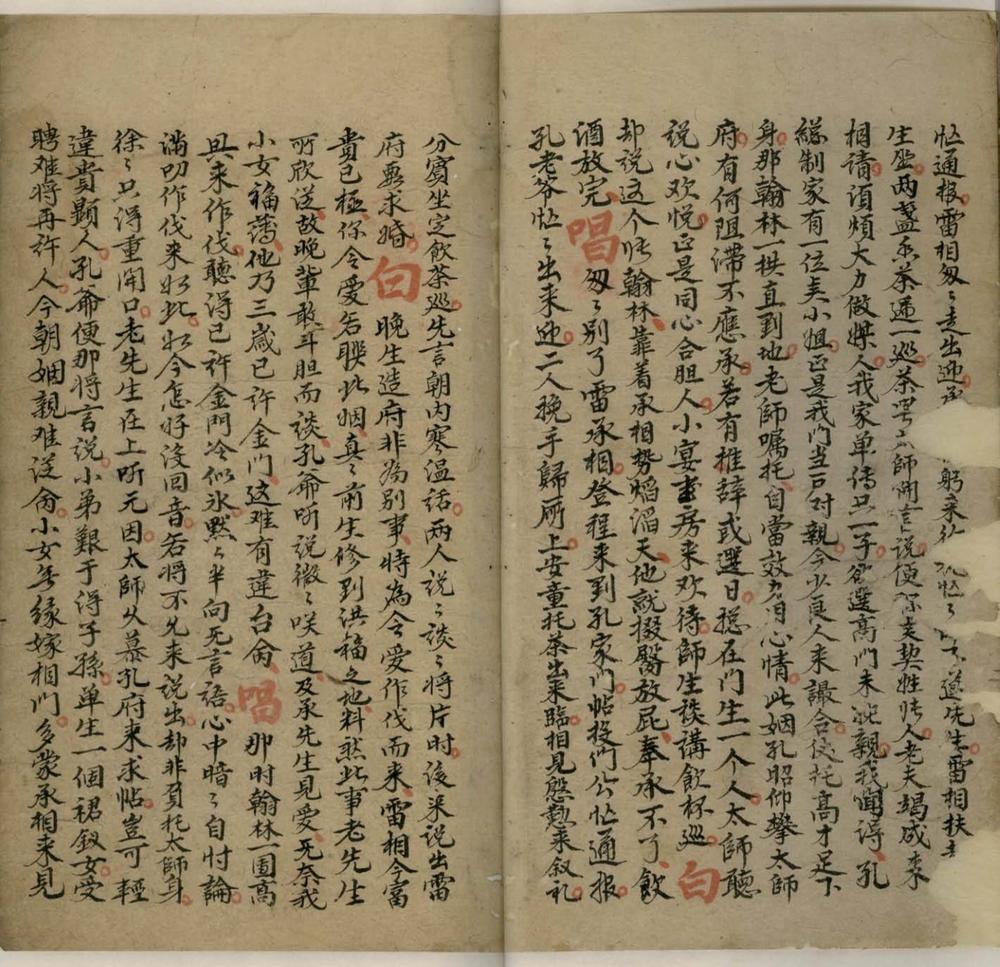 忙通报雷相匆〻走出迎 躬来 忙〻 道先生雷相扶
生坐两盏香茶递一巡茶 太师開言说便 契姓張人老夫竭成来
相請须烦大力做媒人我家单傳只一子欲選高门未 親我闻得孔
総制家有一位美小姐正是我们当戸对親今少良人来讘合 托高才足下
身那翰林一拱直到地老師嘱托自當效 心情此姻孔昭仰攀太師
府有何阻滞不應承若有推辞或選日捴在门生一个人太師聽
说心欢悦正是同心合胆人小宴書房来欢待師生 講飲杯巡白
却说这个張翰林靠着承相势焰滔天他就掇臀放屁奉承不了飲
酒放完唱匆〻别了雷承相登程来到孔家门帖投们公忙通报
孔老爷忙〻出来迎二人挽手歸 上安童托茶出来臨相見慇懃来叙礼
分賓坐定飲茶巡先言朝内寒温話两人说〻談〻将片时後来说出雷
府要求婚白晚生造府非為别事特為令愛作伐而来雷相今富
贵已極你令爱若聯此姻真〻前生修到洪福之地料然此事老先生
所欣送故晚輩敢斗胆而談孔爷听说微〻咲道及承先生見爱无奈我
小女福薄他乃三歲已许金门这难有違台命唱那时翰林一團高
興来作伐聽得已许金門冷似氷默〻半向无言語心中暗〻自忖論
满叨作伐来如此如今怎好没回音若将不允来说出却非負托太師身
徐〻只得重開口老先生在上听元因太師久慕孔府来求帖豈可輕
違貴顯人孔爷便那将言说小弟艱于得子孫单生一個裙釵女受
聘难将再许人今朝姻親难従命小女無缘嫁相门多蒙承相来見